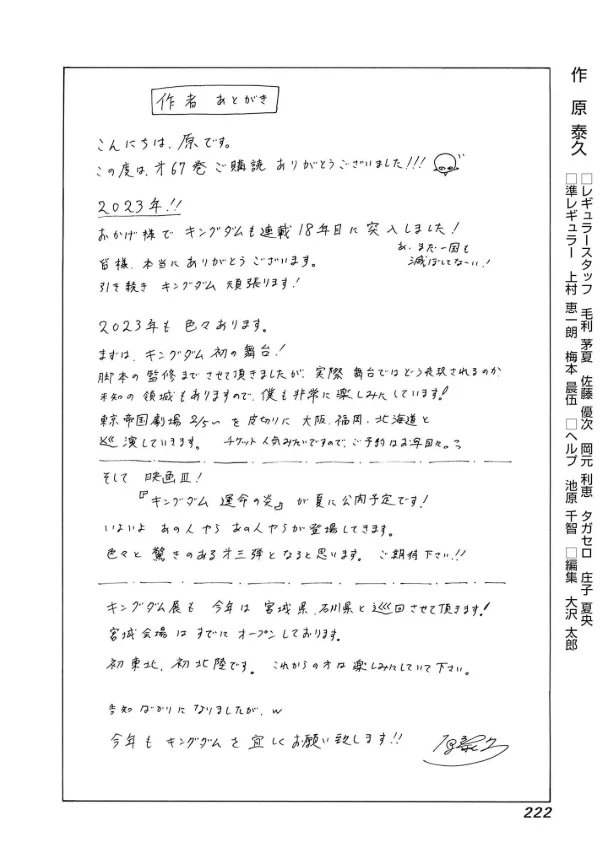 作者 あとがき
こんにちは、原です。
この度は、才67巻ご購読 ありがとうございました!!!
2023年!!
おかげ様で キングダムも連載18年目に突入しました!
あ、まだ一国も
滅ぼしてなーい!
皆様、本当にありがとうございます。
引き続き キングダム 頑張ります!
2023年も 色々あります。
まずは、キングダム初の舞台!
脚本の監修までさせて頂きましたが、実際 舞台ではどう表現されるのか
未知の領域もありますので、僕も非常に楽しみにしています!
東京帝国劇場 2/5〜を皮切りに 大阪、福岡、北海道と
巡演していきます。 チケット人気みたいですので、ご予約はお早目に。
そして 映画Ⅲ!
『キングダム 運命の炎』が夏に公開予定です!
いよいよ あの人やら あの人やらが登場してきます。
色々と 驚きのある才三弾となると思います。 ご期待下さい!!
キングダム展も 今年は 宮城県、石川県と巡回させて頂きます!
宮城会場は すでに オープンしております。
初東北、初北陸です。 これからの方は楽しみにしていて下さい。
告知ばかりになりましたが、w
今年も キングダムを 宜しくお願い致します!!
原泰久
作 原 泰久
□レギュラースタッフ 毛利 茅夏 佐藤 優次 岡元 利恵 タガセロ 庄子 夏央
□準レギュラー 上村 恵一朗 梅本 晨伍 □ヘルプ 池原 千智 □編集 大沢 太郎
222